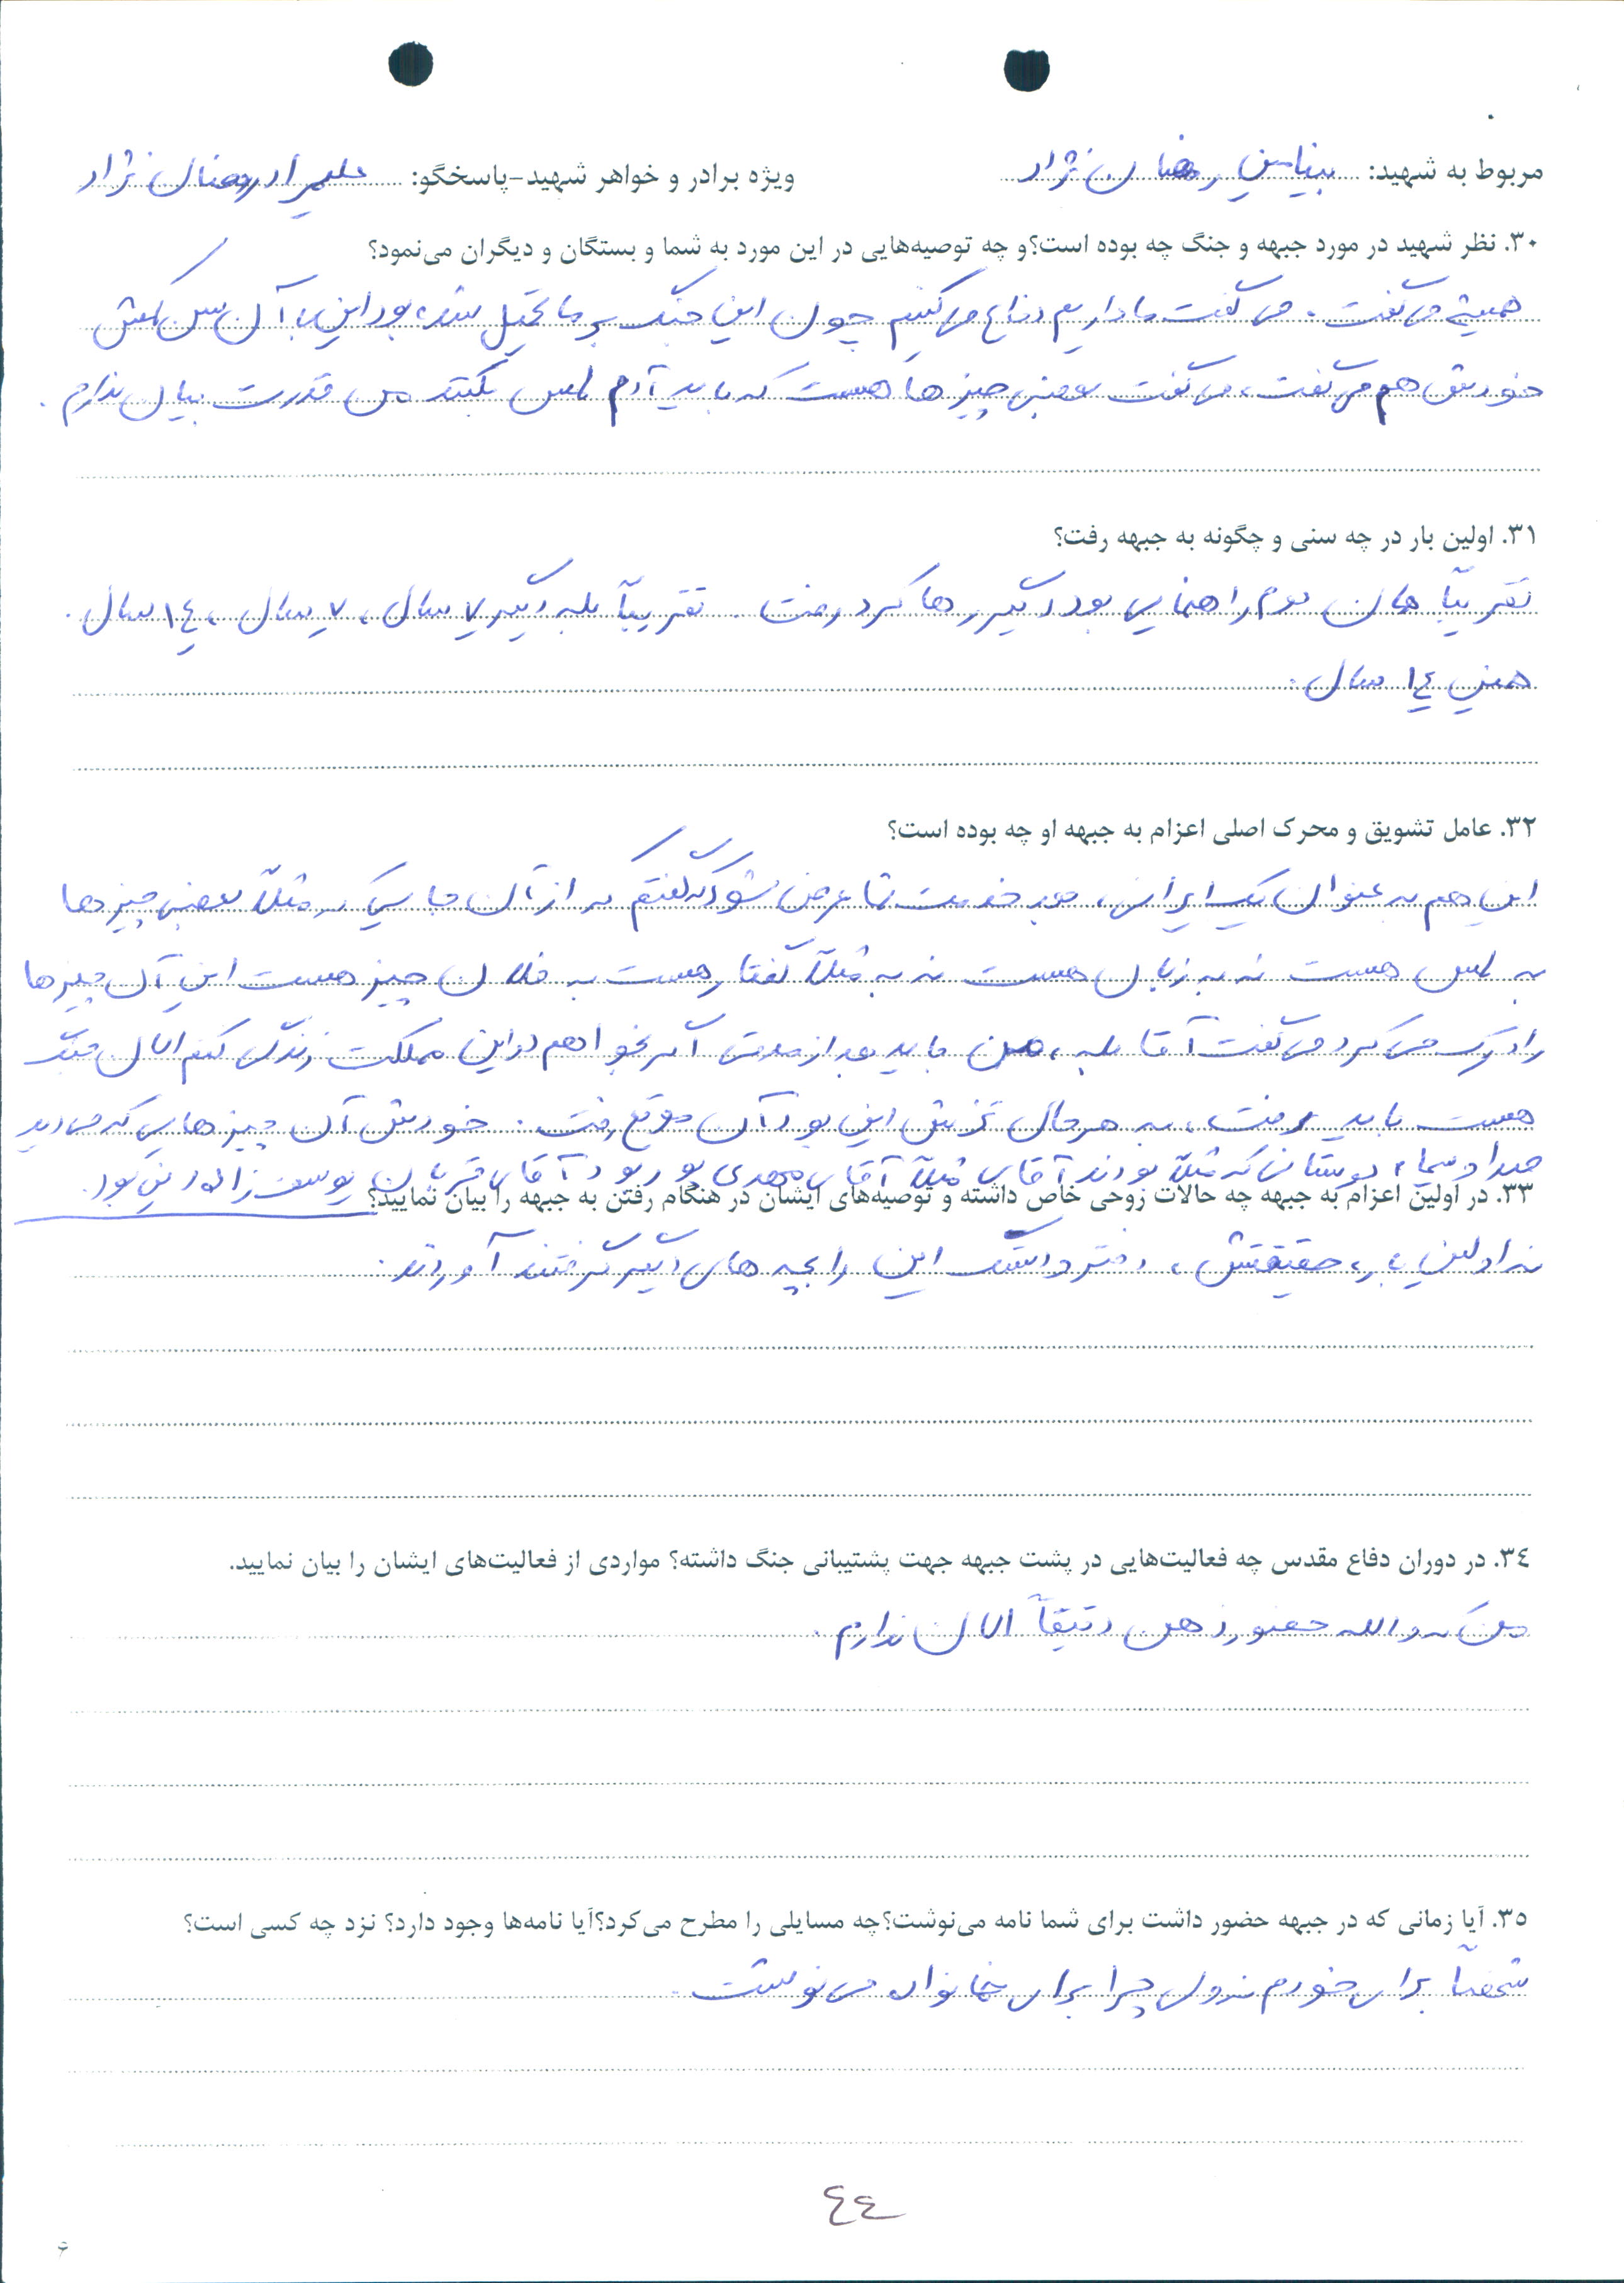 مربوط به شهید: بنیامین رمضان نژاد ویژه برادر و خواهر شهید-پاسخگو: علیمراد رمضان نژاد
۳۰. نظر شهید در مورد جبهه و جنگ چه بوده است؟و چه توصیه‌هایی در این مورد به شما و بستگان و دیگران می‌نمود؟
همیشه می گفت. می گفت ما داریم دفاع می کنیم چون این جنگ بر ما تحمیل شده بود این با آن سن کمش
خودش هم می گفت، می گفت بعضی چیزها هست که باید آدم لمس بکند من قدرت بیان ندارم.
۳۱. اولین بار در چه سنی و چگونه به جبهه رفت؟
تقریباً همان دوم راهنمایی بود دیگر رها کرد رفت. تقریباً بله دیگر ۷ سال، ۷ سال، ۱٤ سال.
همین ۱٤ سال.
۳۲. عامل تشویق و محرک اصلی اعزام به جبهه او چه بوده است؟
این هم به عنوان یک ایرانی، خدمت شما عرض شود که گفتم که از آن جایی که مثلاً بعضی چیزها
به لمس هست نه به زبان هست نه به مثلاً گفتار هست به فلان چیز هست این آن چیزها
را درک می کرد می گفت آقا بله، من باید بعد از مدتی اگر بخواهم در این مملکت زندگی کنم الان جنگ
هست باید رفت، به هر حال این بود آن موقع رفت. خودش آن چیزهایی که می دید
صدا و سیما، دوستانی که مثلاً بودند آقای مثلاً آقای مهدی پور بود آقای قربان یوسف زاده این بود.
۳۳. در اولین اعزام به جبهه چه حالات روحی خاص داشته و توصیه‌های ایشان در هنگام رفتن به جبهه را بیان نمایید؟
نه اولین بار، حقیقتش، دفتر داشت این را بچه های دیگر گرفتند آوردند.
۳٤. در دوران دفاع مقدس چه فعالیت‌هایی در پشت جبهه جهت پشتیبانی جنگ داشته؟ مواردی از فعالیت‌های ایشان را بیان نمایید.
من که والله حضور ذهن دقیقاً الان ندارم.
۳٥. آیا زمانی که در جبهه حضور داشت برای شما نامه می‌نوشت؟چه مسایلی را مطرح می‌کرد؟آیا نامه‌ها وجود دارد؟ نزد چه کسی است؟
شخصاً برای خودم نه ولی چرا برای خانواده می نوشت.
٤٤
۶